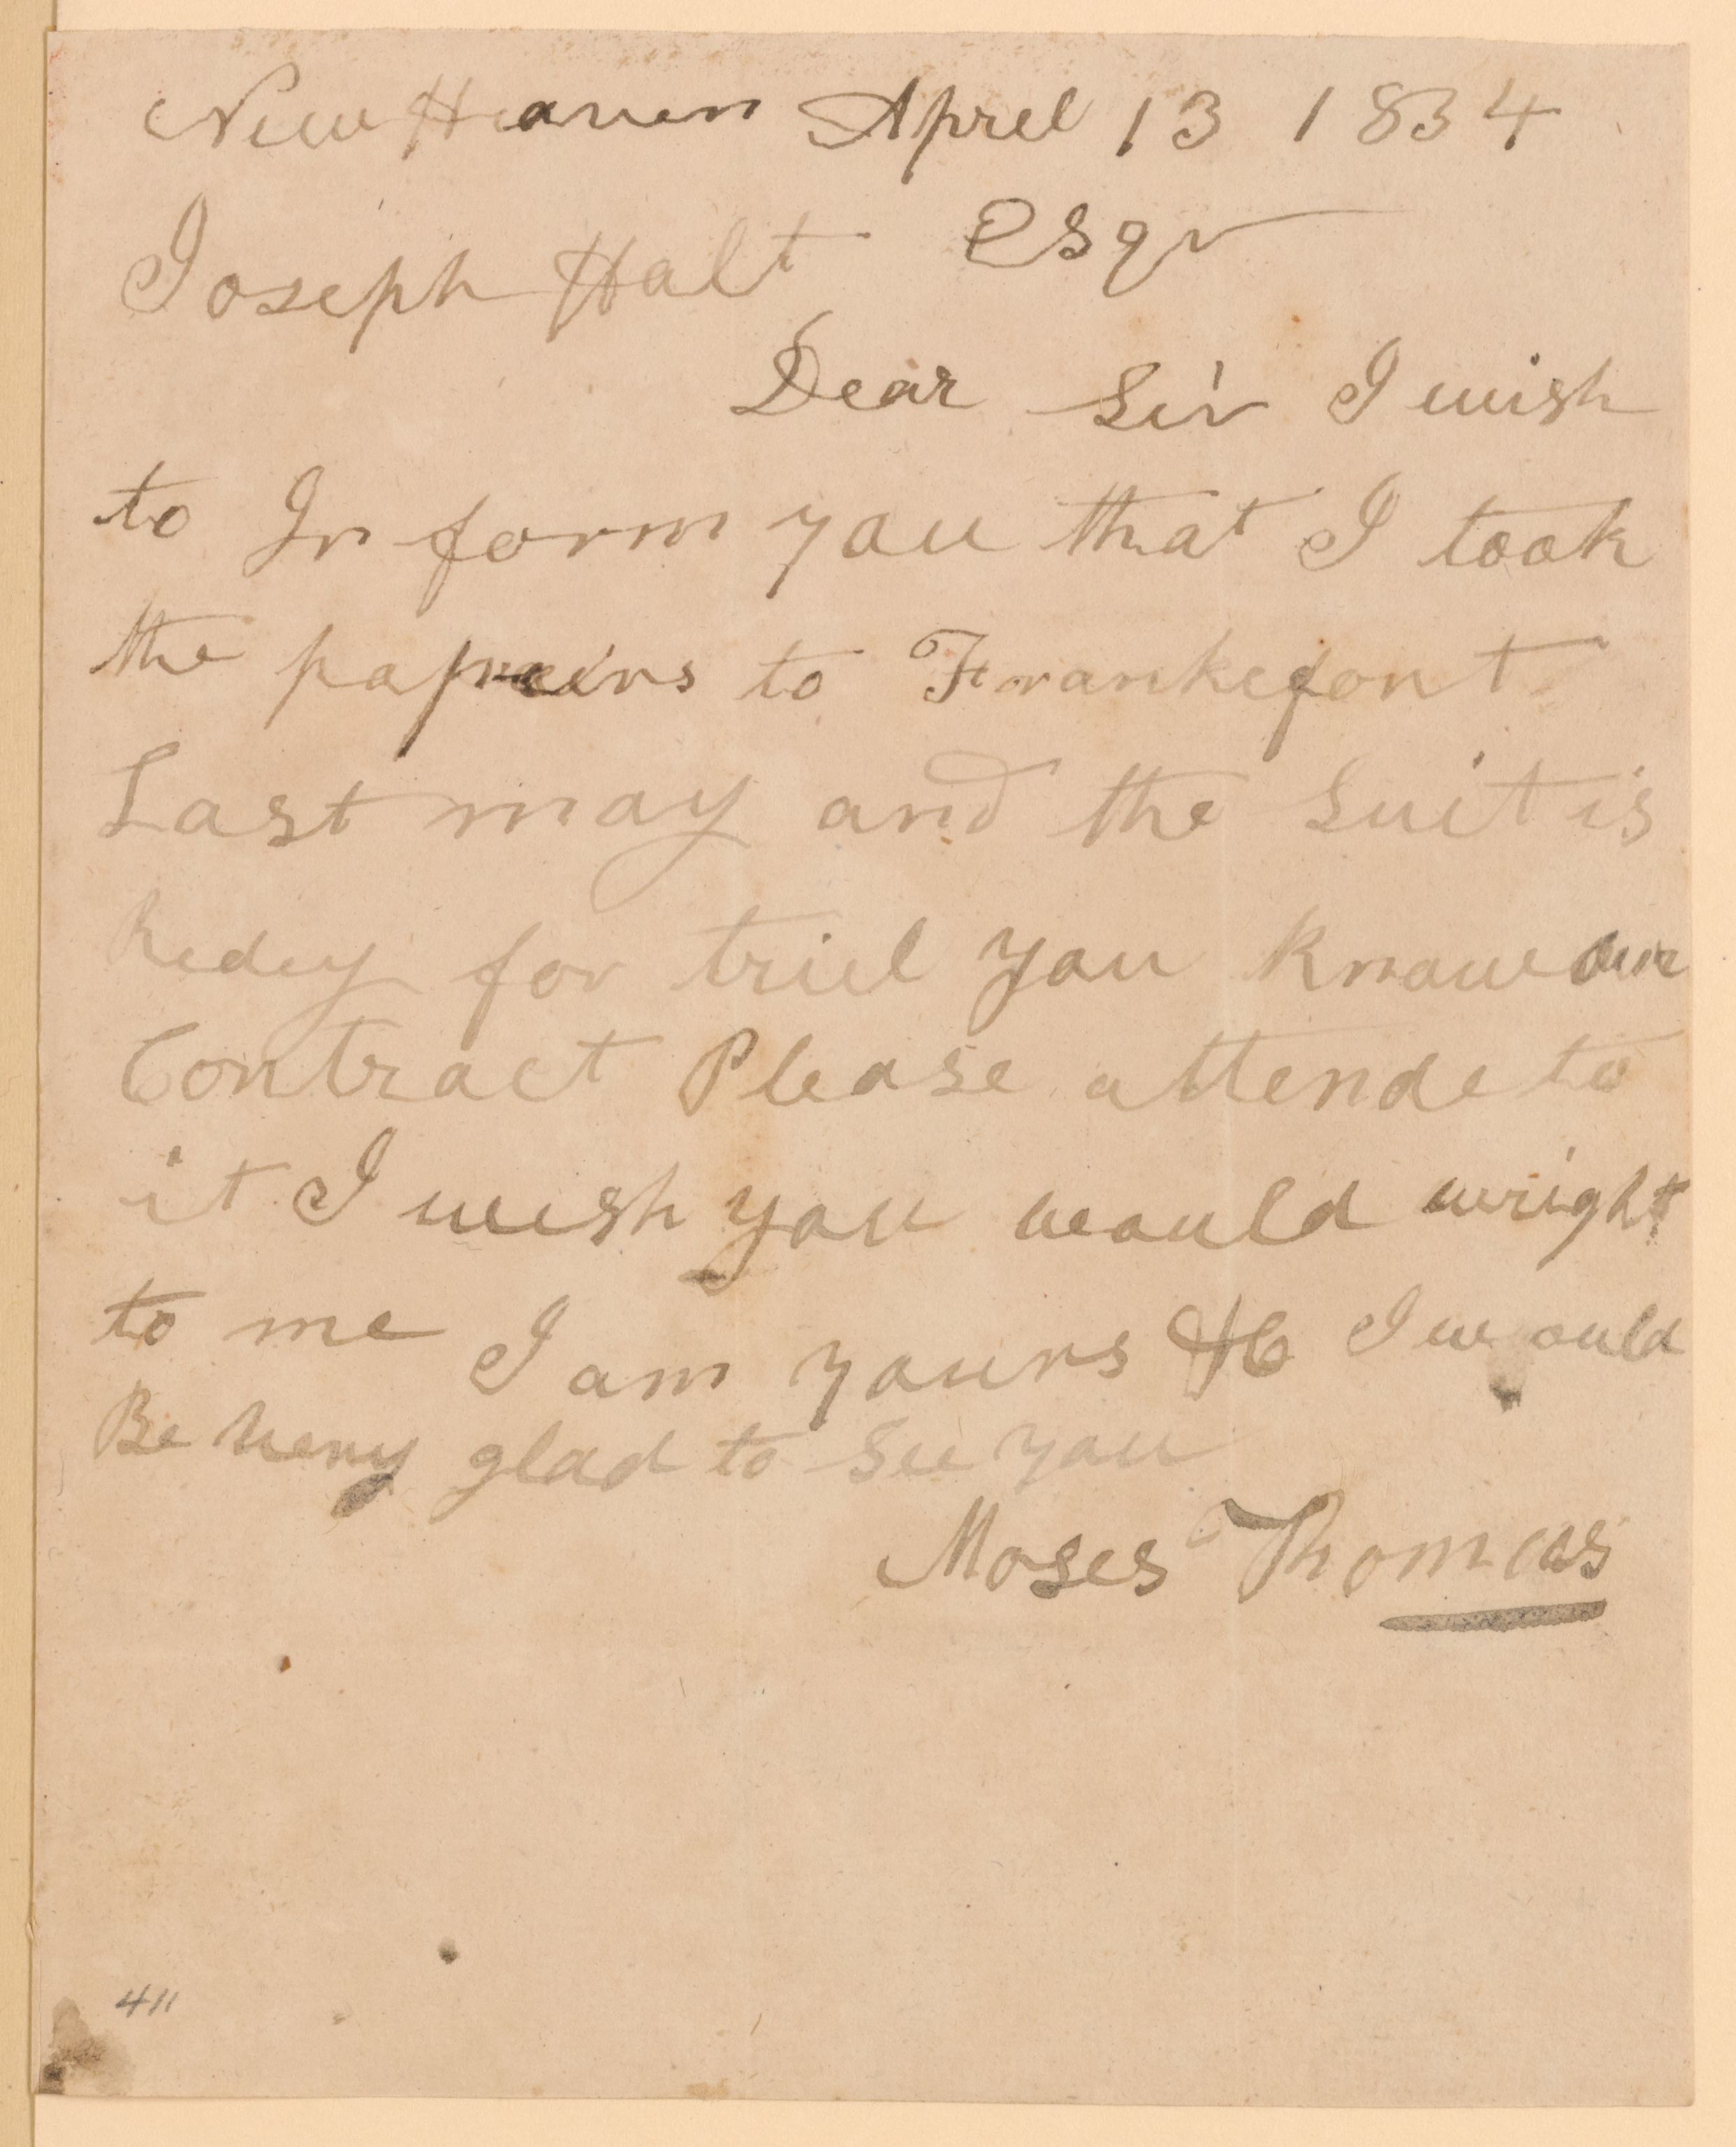 New Heaven Aprel 13 1834
Joseph Halt Esqr
Dear Sir I wish
to In form you that I took
the papeirs to Frankefort
Last may and the Suit is
Redey for triel you know our
Contract Please attende to
it I wish you would wright
to me I am yours &c I would
Be very glad to See you
Moses Thomas
411